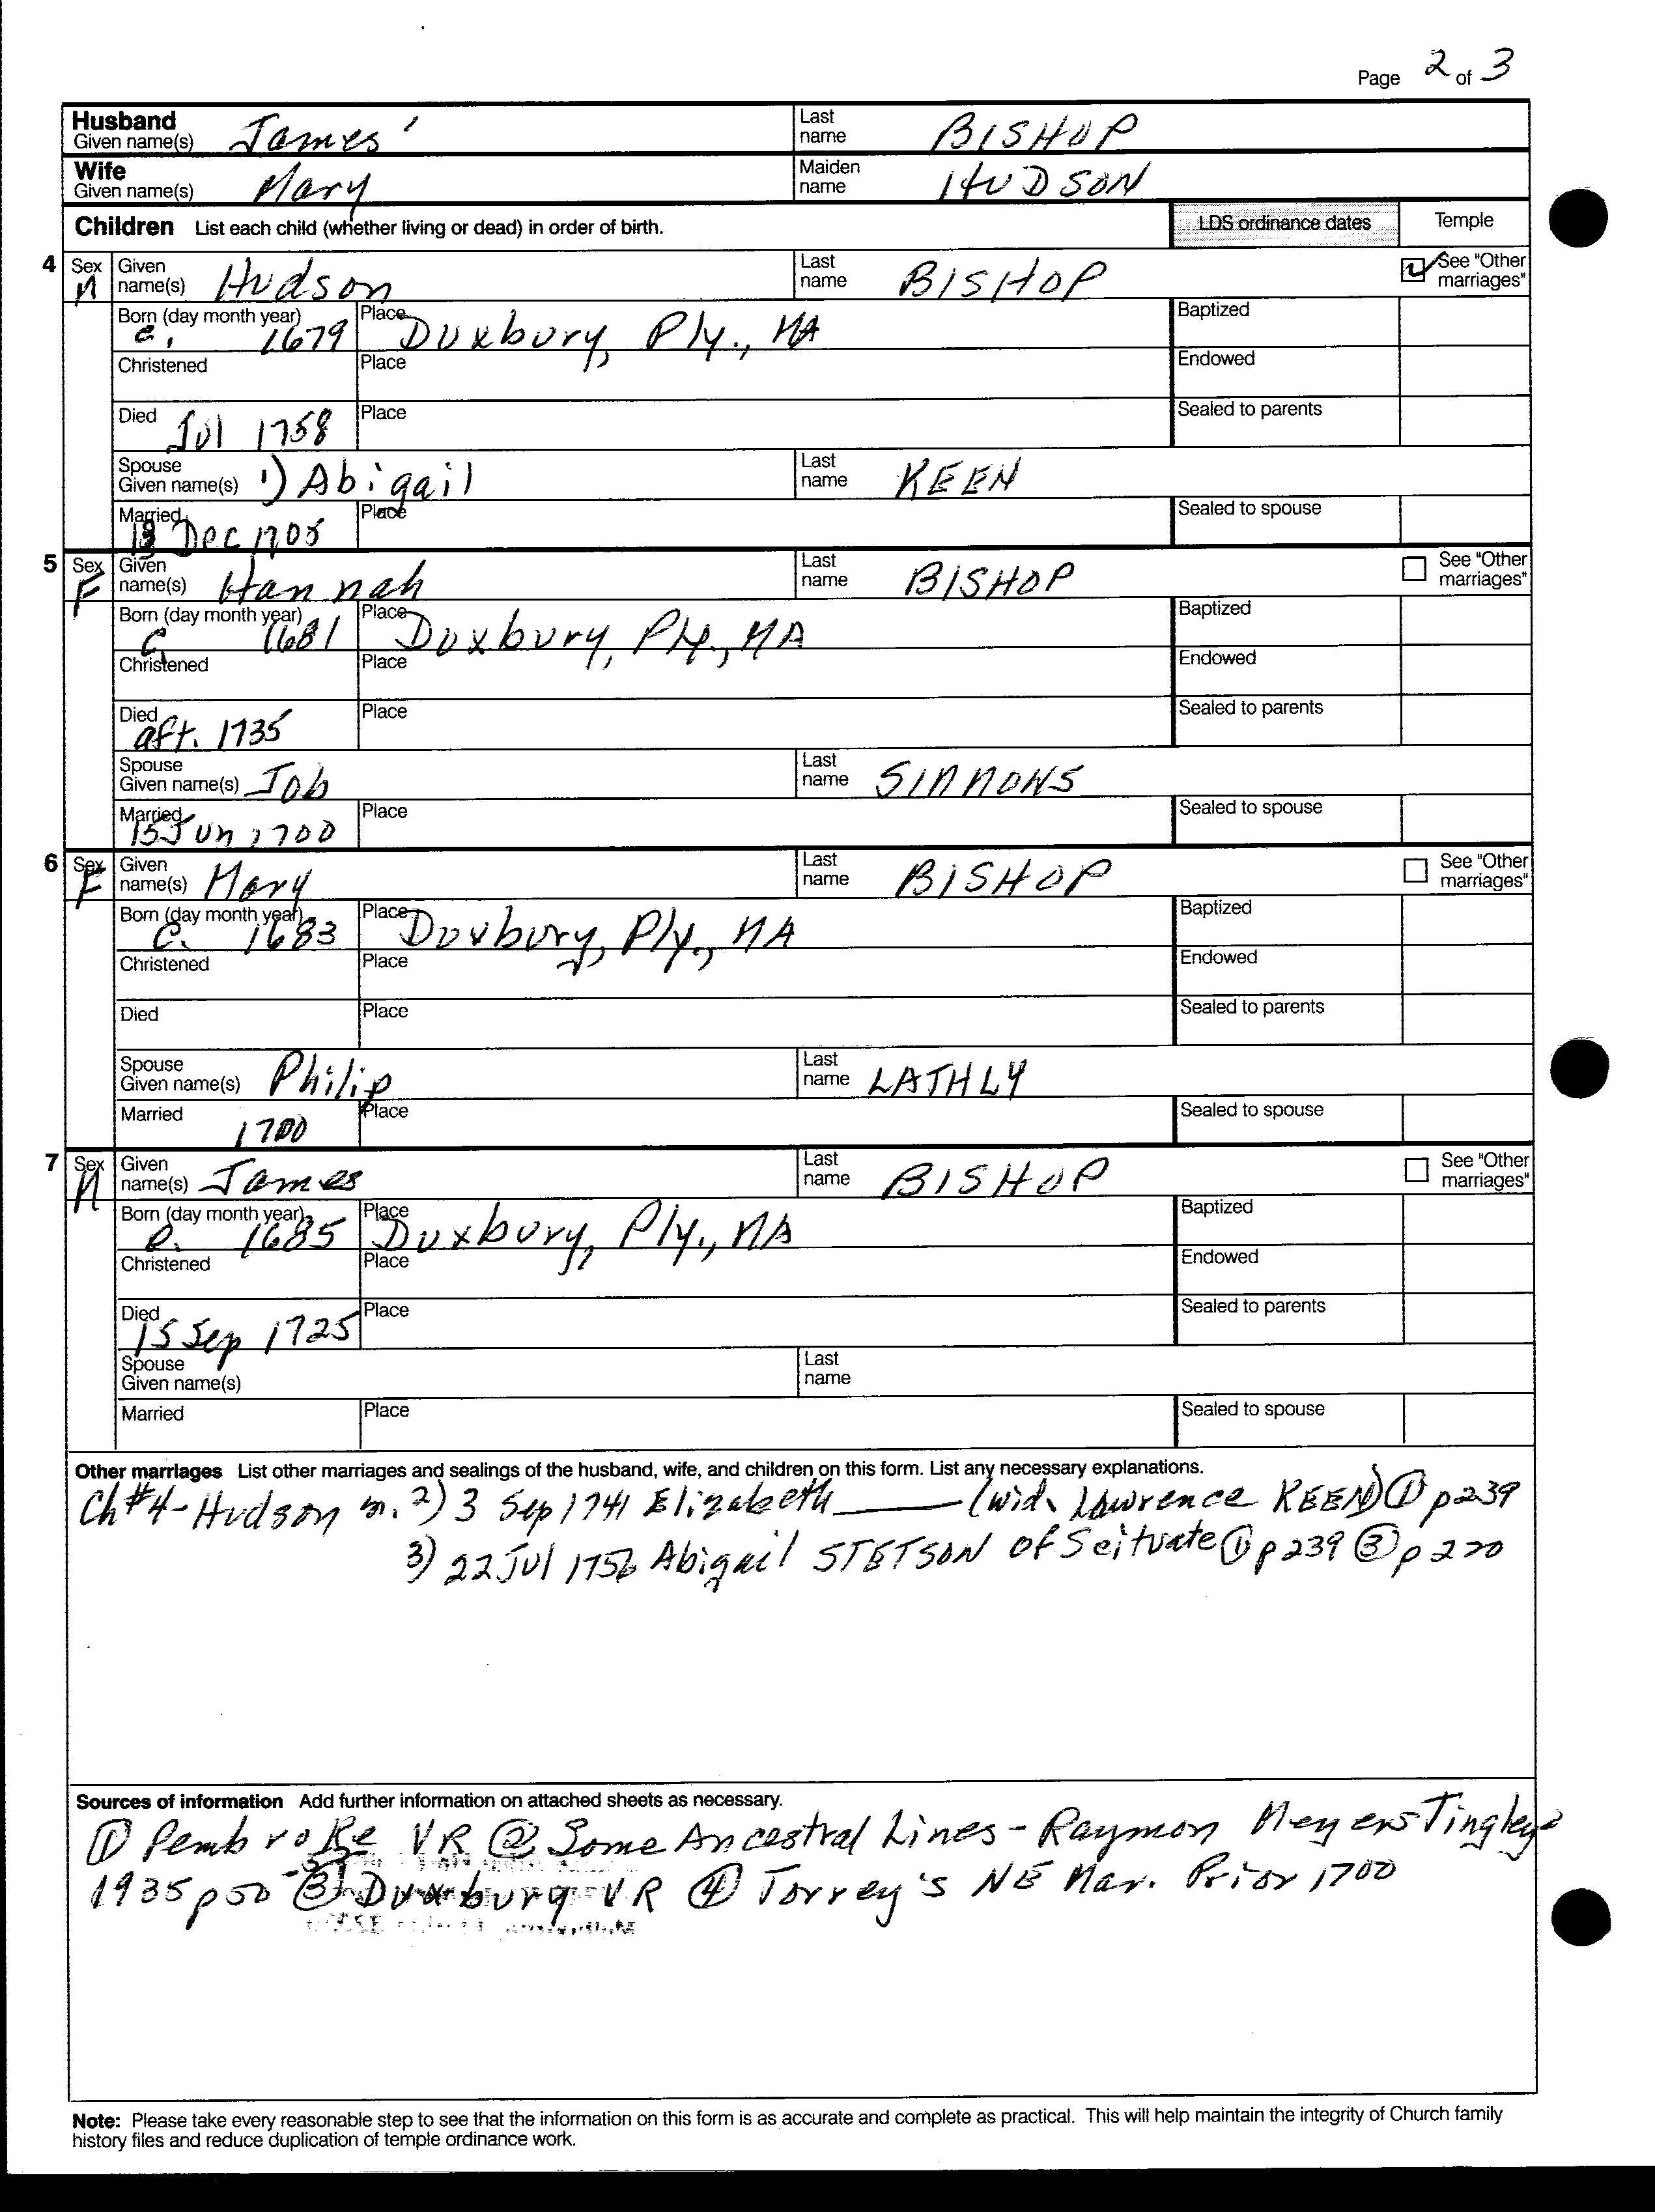 Page 2 of 3
Husband Given name(s) James' Last name BISHOP
Wife Given name(s) Mary Maiden name HUDSON
Children List each child (whether living or dead) in order of birth. LDS ordinance dates Temple
4 Sex M Given name(s) Hudson Last name BISHOP See "Other marriages"
Born (day month year) c. 1679 Place Duxbury, Ply., MA Baptized
Christened Place Endowed
Died Jul 1758 Place Sealed to parents
Spouse Given name(s) 1) Abigail Last name KEEN
Married Dec 1705 Place Sealed to spouse
5 Sex F Given name(s) Hannah Last name BISHOP See "Other marriages"
Born (day month year) c. 1681 Place Duxbury, Ply., MA Baptized
Christened Place Endowed
Died aft. 1735 Place Sealed to parents
Spouse Given name(s) Job Last name SIMMONS
Married 15 Jun 1700 Place Sealed to spouse
6 Sex F Given name(s) Mary Last name BISHOP See "Other marriages"
Born (day month year) c. 1683 Place Duxbury, Ply., MA Baptized
Christened Place Endowed
Died Place Sealed to parents
Spouse Given name(s) Philip Last name LATHLY
Married 1700 Place Sealed to spouse
7 Sex M Given name(s) James Last name BISHOP See "Other marriages"
Born (day month year) c. 1685 Place Duxbury, Ply., MA Baptized
Christened Place Endowed
Died 15 Sep 1725 Place Sealed to parents
Spouse Given name(s) Last name
Married Place Sealed to spouse
Other marriages List other marriages and sealings of the husband, wife, and children on this form. List any necessary explanations.
Ch #4 - Hudson m. 2) 3 Sep 1741 Elizabeth ——— (wid. Lawrence KEEN) ① p 239
3) 22 Jul 1756 Abigail STETSON of Scituate ① p 239 ③ p 220
Sources of information Add further information on attached sheets as necessary.
① Pembroke VR ② Some Ancestral Lines - Raymon Meyers Tingley
1935 p 50 ③ Duxbury VR ④ Torrey's NE Mar. Prior 1700
Note: Please take every reasonable step to see that the information on this form is as accurate and complete as practical. This will help maintain the integrity of Church family
history files and reduce duplication of temple ordinance work.